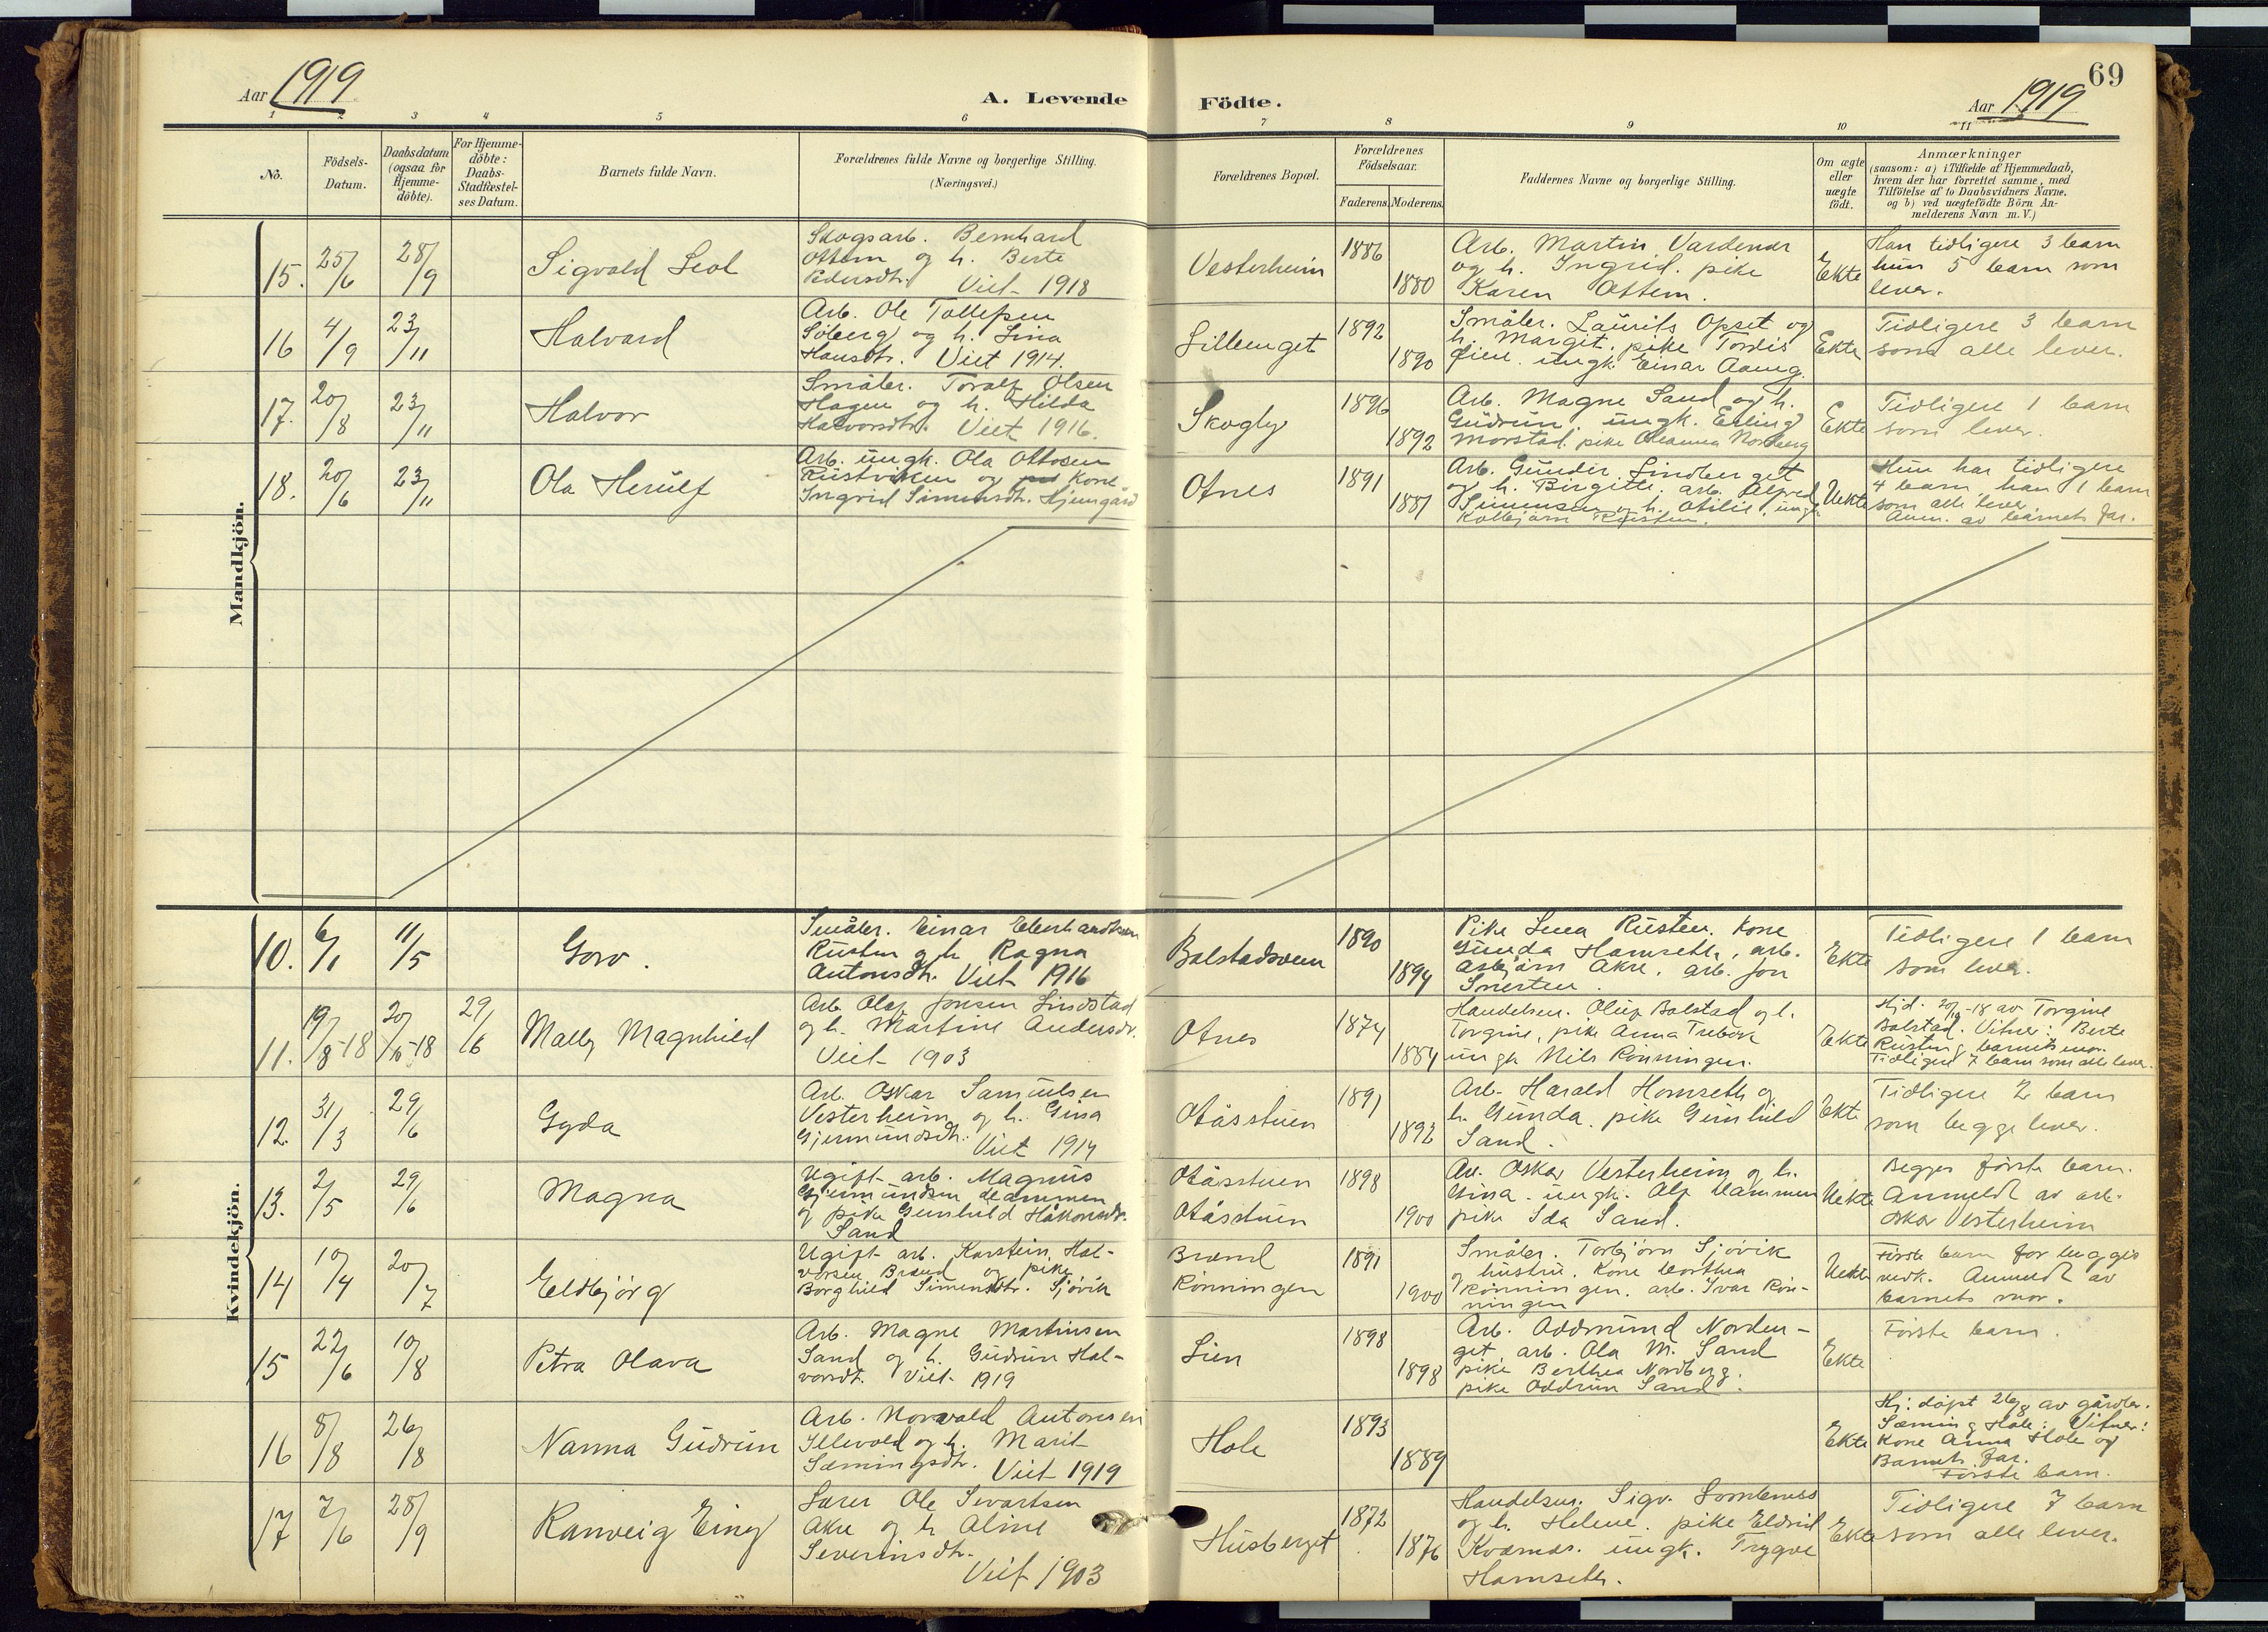 69
Aar 1919
A. Levende
Födte.
Aar 1919
1 2 3 4 5 6 7 8 9 10 11
No.
Födsels-
Datum.
Daabsdatum
(ogsaa for
Hjemme-
döbte).
For Hjemme-
döbte:
Daabs-
Stadfæstel-
ses Datum.
Barnets fulde Navn.
Forældrenes fulde Navne og borgerlige Stilling.
(Næringsvei.)
Forældrenes Bopæl.
Forældrenes
Födselsaar.
Faderens. Moderens.
Faddernes Navne og borgerlige Stilling.
Om ægte
eller
uægte
födt.
Anmærkninger
(saasom: a) i Tilfælde af Hjemmedaab,
hvem der har forrettet samme, med
Tilföielse af to Daabsvidners Navne.
og b) ved uægtefödte Börn An-
melderens Navn m. V.)
Mandkjön.
15. 25/6 28/9
Sigvald Leol
Skogsarb. Bernhard
Ottem og h. Berte
Pedersdtr. Viet 1918
Vesterheim
1886
1880
Arb. Martin Vardenær
og h. Ingrid. pike
Karen Ottem.
Ekte
Han tidligere 3 barn
hun 5 barn som
lever.
16 4/9 23/11
Halvard
Arb. Ole Tollefsen
Söberg og h. Lina
Hansdtr. Viet 1914.
Lilleenget
1892
1890
Småbr. Laurits Opset og
h. Margit. pike Tordis
Öien ungk. Einar Aaeng.
Ekte
Tidligere 3 barn
som alle lever.
17. 20/8 23/11
Halvor
Småbr. Toralf Olsen
Hagen og h. Hilda
Halvorsdtr. Viet 1916.
Skogly
1896
1892
Arb. Magne Sand og h.
Gudrun. ungk. Erling
Morstad. pike Oleanna Nordberg
Ekte
Tidligere 1 barn
som lever.
18. 20/6 23/11
Ola Herulf
Arb. ungk. Ola Ottosen
Rustviken og kone
Ingrid Simensdtr. Hjemgård
Otnes
1891
1881
Arb. Gunder Lindberget
og h. Birgitte. arb. Alfred
Simensen og h. Otilie. ungk.
Kolbjörn Rusten.
Uekte
Hun har tidligere
4 barn han 1 barn
som alle lever.
Anm. av barnets far.
Kvindekjön.
10. 6/1 11/5
Goro.
Småbr. Einar Eberhardtsen
Rusten og h. Ragna
Antonsdtr. Viet 1916
Bolstadsveen
1890
1894
Pike Lina Rusten. Kone
Gunda Hamseth, arb.
Asbjörn Akre. arb. Jon
Snerten.
Ekte
Tidligere 1 barn
som lever.
11. 19/8-18 20/10-18 29/6
Mally Magnhild
Arb. Olaf Jonsen Lindstad
og h. Martine Andersdr.
Viet 1903
Otnes
1874
1884
Handelsm. Oluf Bolstad og h.
Torgine, pike Anna Trebörk
ungk Nils Rönningen.
Ekte
Hjd. 20/10-18 av Torgine
Bolstad. Vitner: Berte
Rusten og barnets mor.
Tidligere 7 barn som alle lever.
12. 31/3 29/6
Gyda
Arb. Oskar Samuelsen
Vesterheim og h. Gina
Gjermundsdtr. Viet 1914
Otåsstuen
1891
1892
Arb. Harald Homseth og
h. Gunda. pike Gunhild
Sand.
Ekte
Tidligere 2 barn
som begge lever.
13. 2/5 29/6
Magna
Ugift arb. Magnus
Gjermundsen Hammen
og pike Gunhild Håkonsdr.
Sand
Otåsstuen
Otåsstuen
1898
1900
Arb. Oskar Vesterheim og h.
Gina. ungk. Alf Hammen
pike Ida Sand.
Uekte
Begges förste barn.
Anmeldt av arb.
Oskar Vesterheim
14 10/4 20/7
Eldbjörg
Ugift arb. Karstein Hal-
vorsen Brænd og pike
Borghild Simensdtr. Sjövik
Brænd
Rönningen
1891
1900
Småbr. Torbjörn Sjövik
og hustru. Kone Dorthea
Rönningen. arb. Ivar Rön-
ningen
Uekte
Förste barn for begges
vedk. Anmeldt av
barnets mor.
15 22/6 10/8
Petra Olava
Arb. Magne Martinsen
Sand og h. Gudrun Hal-
vorsdt. Viet 1919
Lien
1898
1898
Arb. Oddmund Norden-
get arb. Ola M. Sand
pike Berthea Nordberg.
pike Oddrun Sand.
Ekte
Förste barn.
16 8/8 26/8
Nanna Gudrun
Arb. Norvald Antonsen
Illevold og h. Marit
Sæmingsdtr. Viet 1919
Hole
1893
1889
Ekte
Hj: döpt 26/8 av gårdbr.
Sæming Hole. Vitner:
Kone Anna Hole og
Barnets far.
Förste barn.
17 7/6 28/9
Ranveig Einy
Lærer Ole Sivartsen
Akre og h. Aline
Severinsdtr.
Viet 1903
Husberget
1872
1876
Handelsm. Sigv. Lombnæs
og h. Helene. pike Eldrid
Kværnær. ungk. Trygve
Hamseth.
Ekte
Tidligere 7 barn
som alle lever.